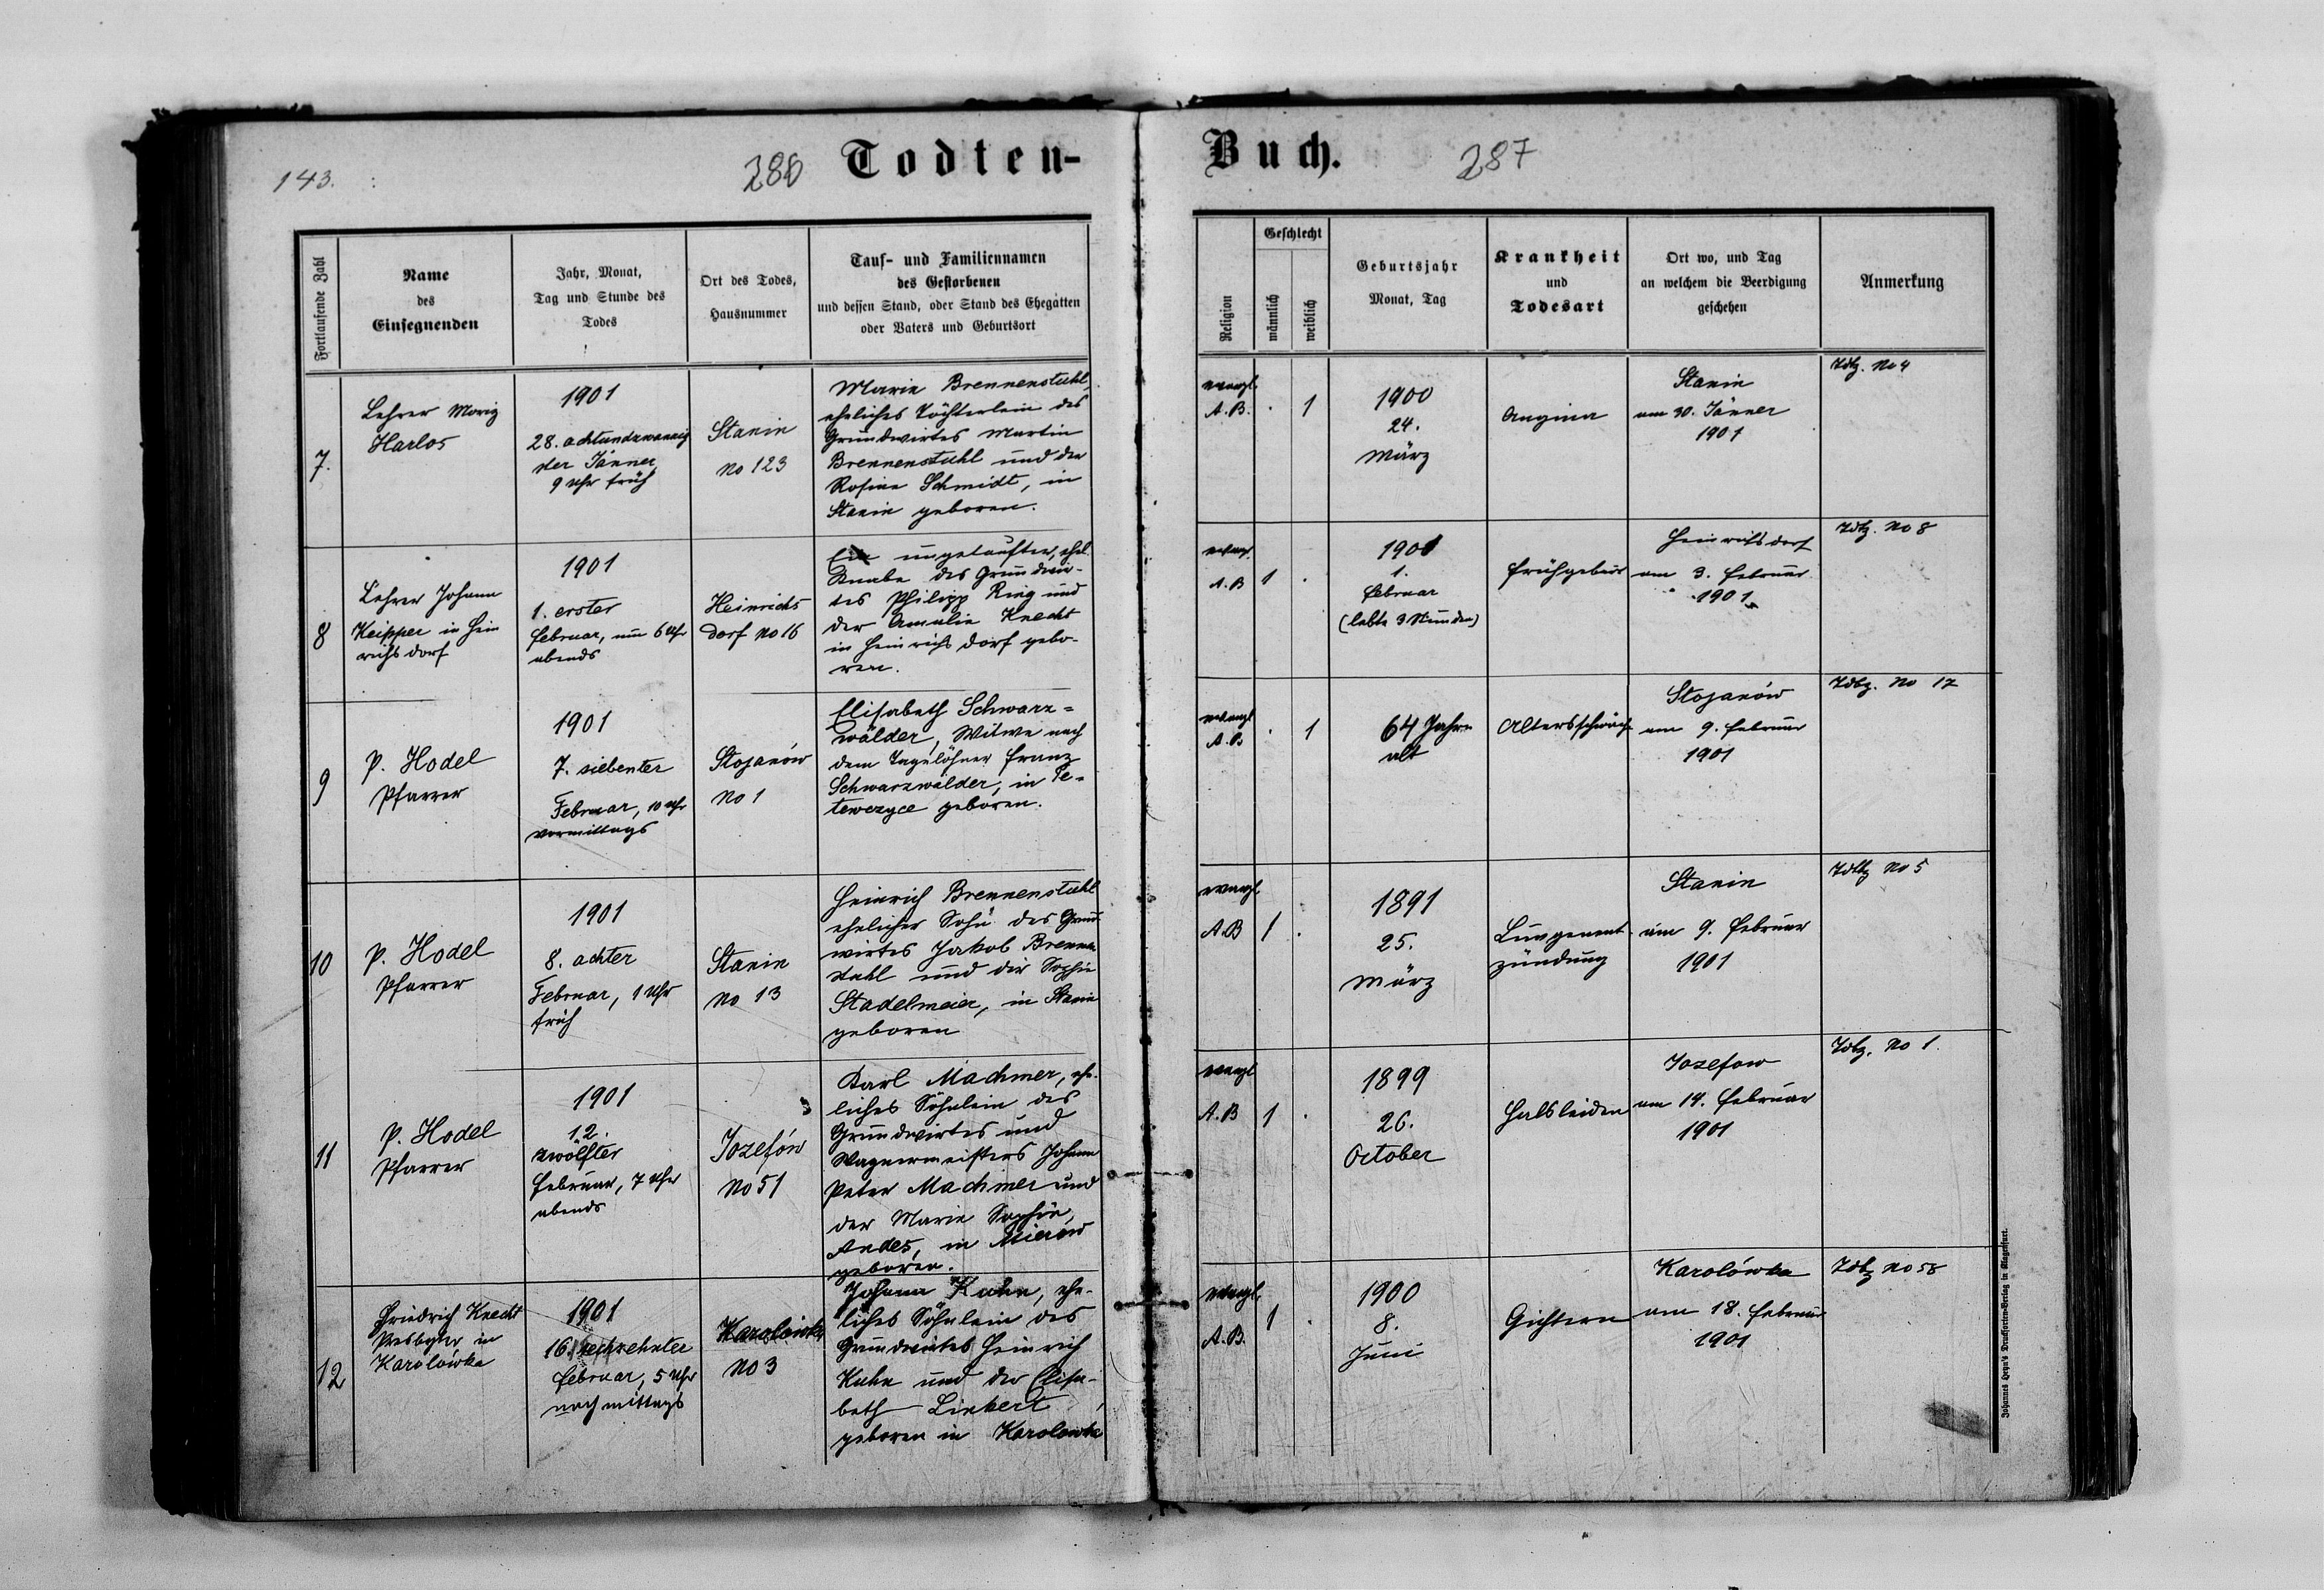 143.
286
Todten-
Buch.
287
Fortlaufende Zahl
Name
des
Einsegnenden
Jahr, Monat,
Tag und Stunde des
Todes
Ort des Todes,
Hausnummer
Tauf- und Familiennamen
des Gestorbenen
und dessen Stand, oder Stand des Ehegatten
oder Vaters und Geburtsort
Religion
Geschlecht
männlich
weiblich
Geburtsjahr
Monat, Tag
Krankheit
und
Todesart
Ort wo, und Tag
an welchem die Beerdigung
geschehen
Anmerkung
7.
Lehrer Moriz
Harlos
1901
28. achtundzwanzig
ster Jänner
9 Uhr früh
Stanin
No 123
Marie Brennenstuhl,
eheliches Töchterlein des
Grundwirtes Martin
Brennenstuhl und der
Rosina Schmidt, in
Stanin geboren.
evangl.
A.B.
1
1900
24.
März
Angina
Stanin
am 30. Jänner
1901
Zdlg. No 4
8
Lehrer Johann
Keipper in Hein
richsdorf
1901
1. erster
Februar, um 6 Uhr
abends
Heinrichs
dorf No 16
Ein ungetaufter, ehel.
Knabe des Grundwir-
tes Philipp Ring und
der Amalie Knecht
in Heinrichsdorf gebo-
ren.
evang.
A.B
1
1901
1.
Februar
(lebte 3 Stunden)
Frühgeburt
Heinrichsdorf
am 3. Februar
1901
Zdlg. No 8
9
P. Hodel
Pfarrer
1901
7. siebenter
Februar, 10 Uhr
vormittags
Stojanów
No 1
Elisabeth Schwarz=
wälder, Witwe nach
dem Tagelöhner Franz
Schwarzwälder, in Te-
tewczyce geboren.
evangl
A.B
1
64 Jahre
alt
Altersschwäche
Stojanów
am 9. Februar
1901
Zdlg. No 12
10
P. Hodel
Pfarrer
1901
8. achter
Februar, 1 Uhr
früh
Stanin
No 13
Heinrich Brennenstuhl
ehelicher Sohn des Grund
wirtes Jakob Brennen
stuhl und der Sophie
Stadelmeier, in Stanin
geboren
evangl.
A.B
1
1891
25.
März
Lungenent
zündung
Stanin
am 9. Februar
1901
Zdlg No 5
11
P. Hodel
Pfarrer
1901
12.
zwölfter
Februar, 7 Uhr
abends
Jozefów
No 51
Karl Machmer, ehe-
liches Söhnlein des
Grundwirtes und
Wagnermeisters Johann
Peter Machmer und
der Marie Sophie,
Andes, in
geboren.
evangl
A.B
1
1899
26.
October
Halsleiden
Jozefow
am 14. Februar
1901
Zdlg. No 1.
12
Friedrich Knecht
Presbyter in
Karolówka
1901
16. sechzehnter
Februar, 5 Uhr
nachmittags
Karolówka
No 3
Johann Kuhn, ehe-
liches Söhnlein des
Grundwirtes Heinrich
Kuhn und der Elisa-
beth Linkert
geboren in Karolówka
evangl.
A.B.
1
1900
8.
Juni
Gichtern
Karolówka
am 18. Februar
1901
Zdlg No 58
Johannes Heyn's Drucksorten-Verlag in Klagenfurt.